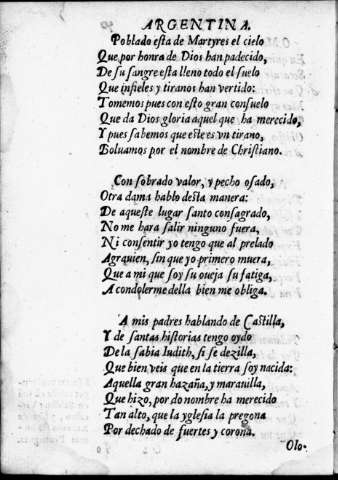 ARGENTINA.
Poblado esta de Martyres el cielo
Que por honra de Dios han padecido,
De su sangre esta lleno todo el suelo
Que infieles y tiranos han vertido:
Tomemos pues con esto gran consuelo
Que da Dios gloria aquel que ha merecido,
Y pues sabemos que este es vn tirano,
Boluamos por el nombre de Christiano.
Con sobrado valor, y pecho osado,
Otra dama hablo desta manera:
De aqueste lugar santo consagrado,
No me hara salir ninguno fuera,
Ni consentir yo tengo que al prelado
Agrauien, sin que yo primero muera,
Que a mi que soy su oueja su fatiga,
A condolerme della bien me obliga.
A mis padres hablando de Castilla,
Y de santas historias tengo oydo
De la sabia Iudith, si se dezilla,
Que bien veis que en la tierra soy nacida:
Aquella gran hazaña, y marauilla,
Que hizo, por do nombre ha merecido
Tan alto, que la yglesia la pregona
Por dechado de fuertes y corona.
Olo-